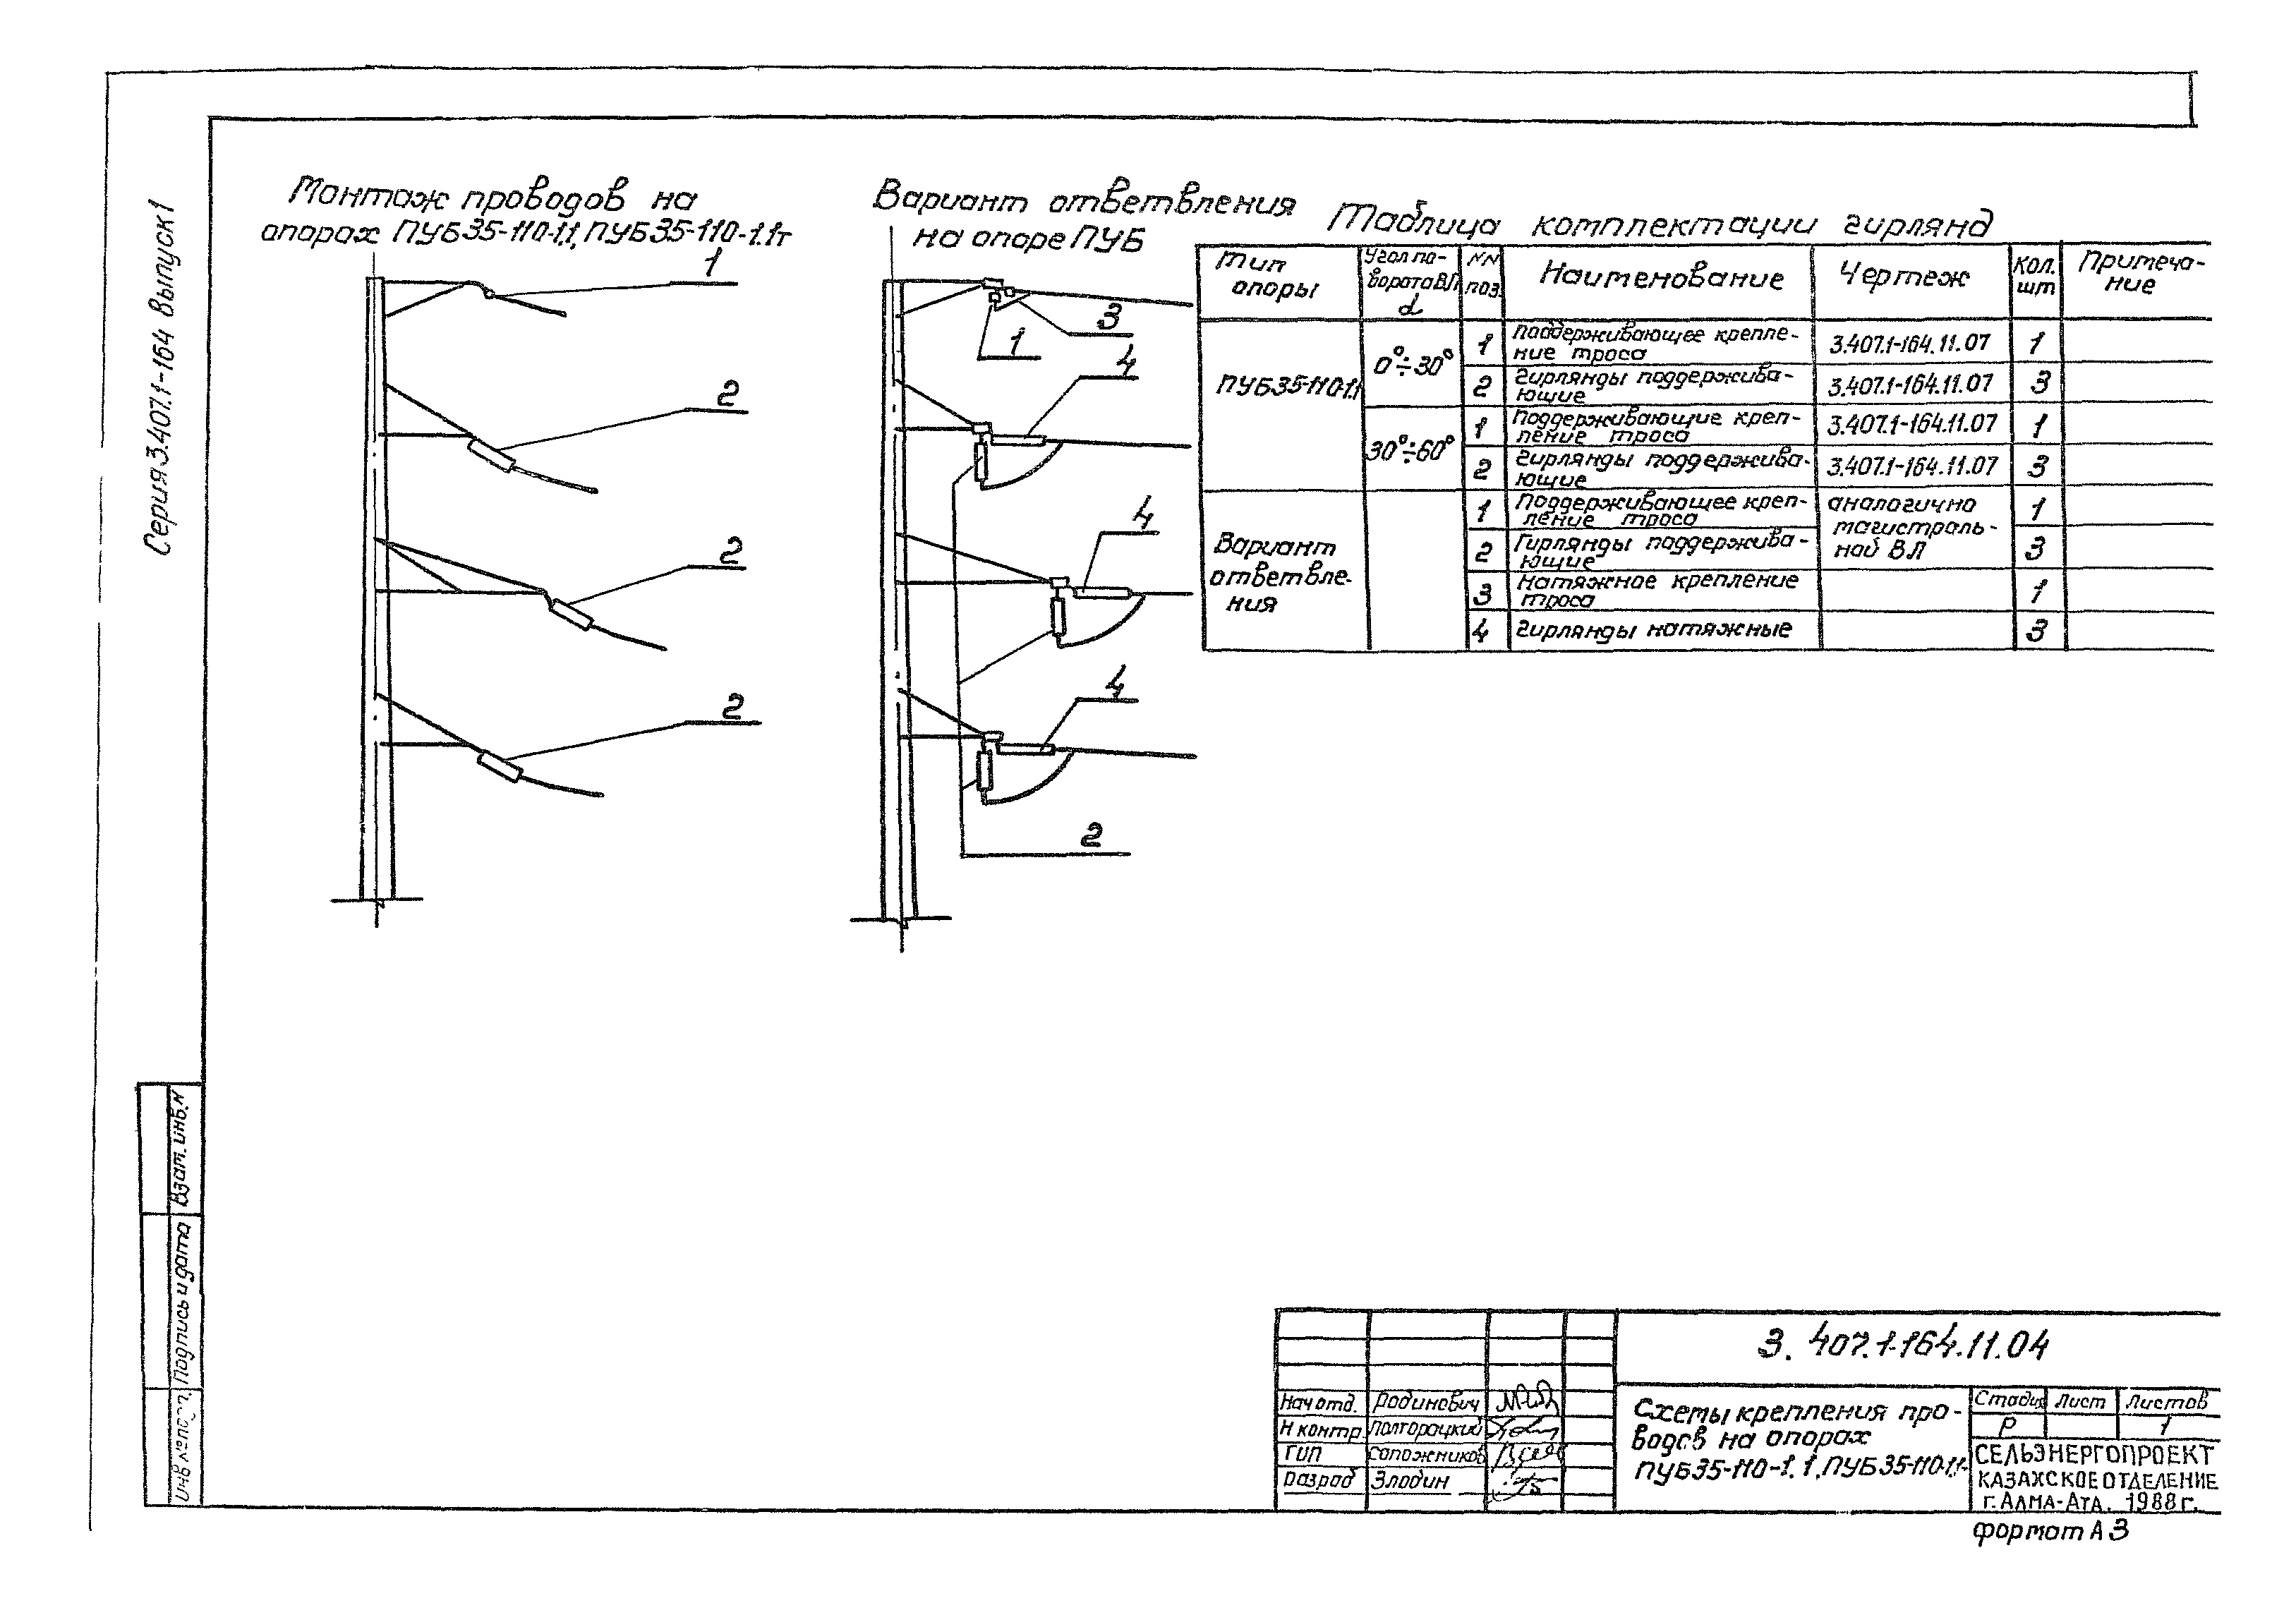 Серия 3.407.1-164 Выпуск 1
Монтаж проводов на
опорах ПУБ35-110-1.1, ПУБ35-110-1.1т
1
2
2
2
Вариант ответвления
на опоре ПУБ
3
1
4
4
4
2
Таблица комплектации гирлянд
Тип опоры
Угол поворота ВЛ α
NN поз.
Наименование
Чертеж
Кол. шт
Примеча-
ние
ПУБ35-110-1.1
0°÷30°
1 Поддерживающее крепле-
ние троса 3.407.1-164.11.07 1
2 Гирлянды поддержива-
ющие 3.407.1-164.11.07 3
30°÷60°
1 Поддерживающие креп-
ление троса 3.407.1-164.11.07 1
2 Гирлянды поддержива-
ющие 3.407.1-164.11.07 3
Вариант
ответвле-
ния
1 Поддерживающее креп-
ление троса 1
2 Гирлянды поддержива-
ющие 3
аналогично
магистраль-
ной ВЛ
3 Натяжное крепление
троса 1
4 Гирлянды натяжные 3
Взам. инв. N
Подпись и дата
Инв № подл.
3.407.1-164.11.04
Нач отд. Рабинович
Н контр. Полгорацкий
ГИП Сапожников
Разраб Злобин
Схемы крепления про-
водов на опорах
ПУБ35-110-1.1, ПУБ35-110-1.1
Стадия Лист Листов
Р 1
СЕЛЬЭНЕРГОПРОЕКТ
КАЗАХСКОЕ ОТДЕЛЕНИЕ
г. АЛМА-АТА. 1988 г.
формат А3